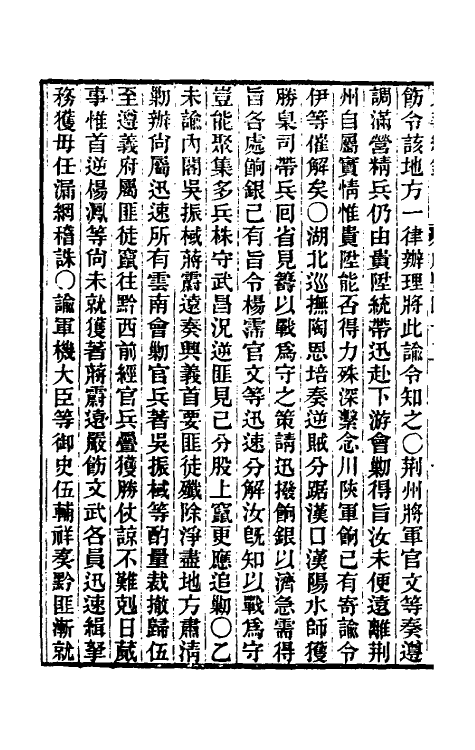 飭令該地方一律辦理將此諭令知之〇荆州將軍官文等奏遵
調滿營精兵仍由貴陞統帶迅赴下游會勦得旨汝未便遠離荆
州自屬實情惟貴陞能否得力殊深繫念川陝軍餉已有寄諭令
伊等催解矣〇湖北巡撫陶恩培奏逆賊分踞漢口漢陽水師獲
勝臬司帶兵囘省見籌以戰爲守之策請迅撥餉銀以濟急需得
旨各處餉銀已有旨令楊霈官文等迅速分解汝旣知以戰爲守
豈能聚集多兵株守武昌況逆匪見已分股上竄更應追勦〇乙
未諭內閣吳振棫蔣霨遠奏興義首要匪徒殲除淨盡地方肅淸
勦辦尙屬迅速所有雲南會勦官兵著吳振棫等酌量裁撤歸伍
至遵義府屬匪徒竄往黔西前經官兵疊獲勝仗諒不難剋日蕆
事惟首逆楊漋等尙未就獲著蔣霨遠嚴飭文武各員迅速緝拏
務獲毋任漏網稽誅〇諭軍機大臣等御史伍輔祥奏黔匪漸就